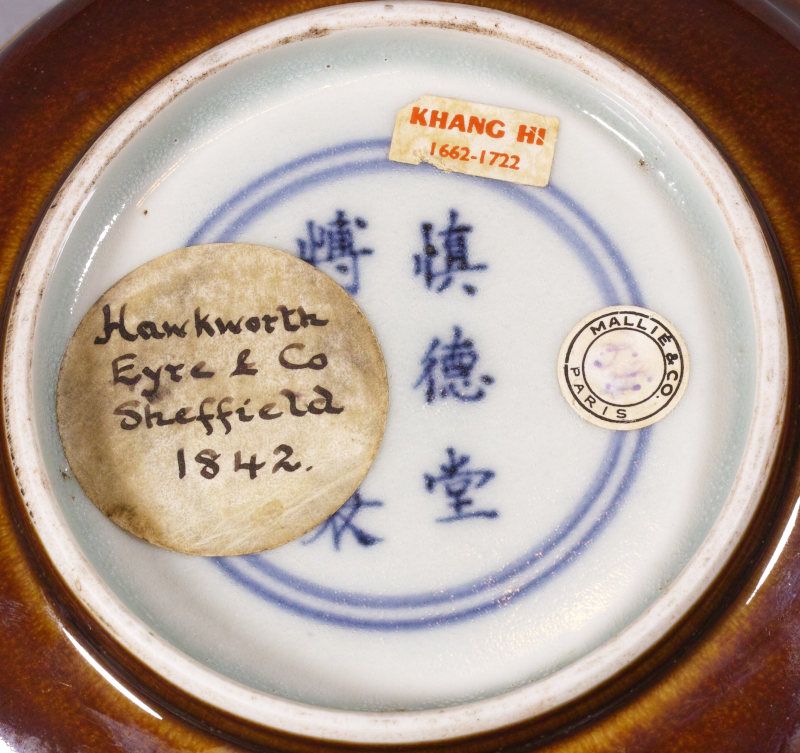 KHANG HI
1662-1722
慎德堂
愽
Hawkworth
Eyre & Co
Sheffield
1842.
MALLIÉ & CO.
PARIS